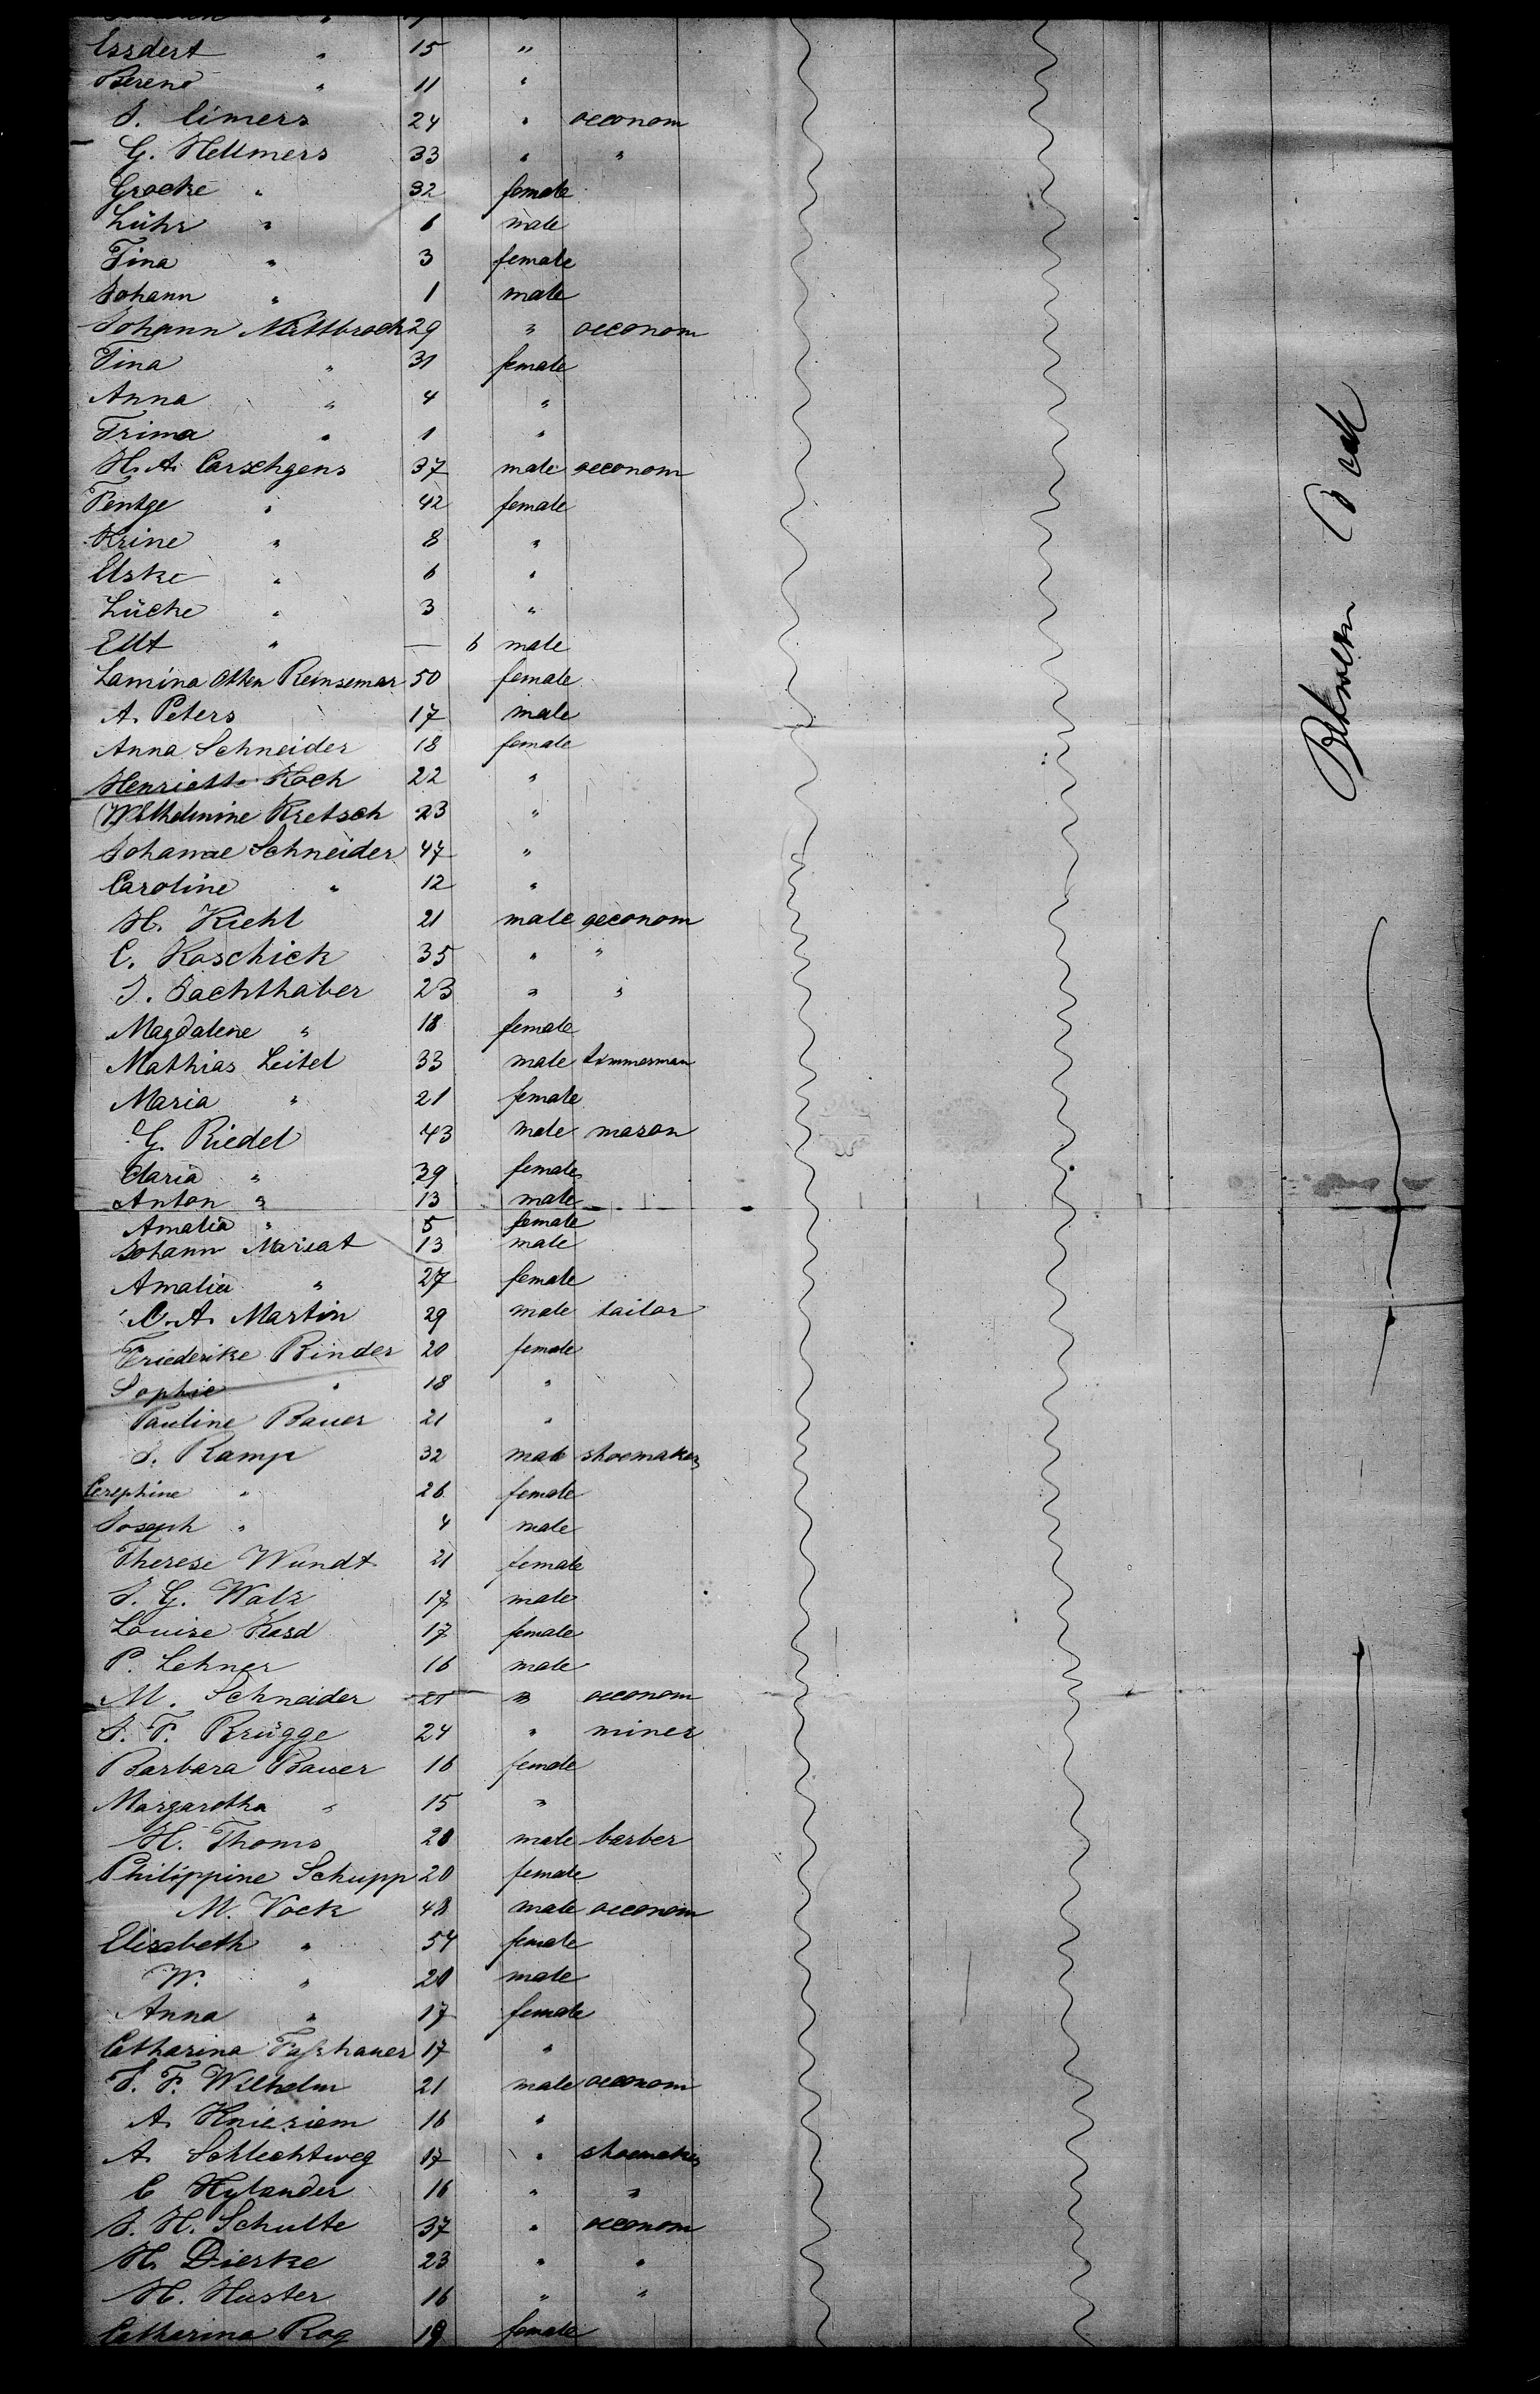 Essdert " 15 "
Berend " 11 "
J. Eimers 24 " oeconom
G. Hellmers 33 " "
Groeke " 32 female
Lühr " 6 male
Tina " 3 female
Johann " 1 male
Johann Nuttbrock 29 " oeconom
Tina " 31 female
Anna " 4 "
Trima " 1 "
H. A. Carschgens 37 male oeconom
Tentge " 42 female
Krine " 8 "
Elske " 6 "
Lücke " 3 "
Ellt " — 6 male
Lamina Otten Reinsemar 50 female
A. Peters 17 male
Anna Schneider 18 female
Henriette Koch 22 "
Wilhelmine Kretsch 23 "
Johanne Schneider 47 "
Caroline " 12 "
H. Kiehl 21 male oeconom
C. Koschick 35 " "
J. Sachthaber 23 " "
Magdalene " 18 female
Mathias Leitel 33 male timmerman
Maria " 21 female
G. Riedel 43 male mason
Maria " 39 female
Anton " 13 male
Amalia " 5 female
Johann Marsat 13 male
Amalia " 27 female
C. A. Martin 29 male tailor
Friederike Binder 20 female
Sophie " 18 "
Pauline Bauer 21 "
J. Ramp 32 male shoemaker
Cerephine " 26 female
Joseph " 4 male
Therese Wundt 21 female
J. G. Walz 17 male
Louise Kasd 17 female
P. Lehner 16 male
M. Schneider 21 " oeconom
J. F. Brügge 24 " miner
Barbara Bauer 16 female
Margarotha " 15 "
H. Thoms 20 male barber
Philippine Schupp 20 female
M. Vock 48 male oeconom
Elisabeth " 54 female
W. " 20 male
Anna " 17 female
Catharina Faßhauer 17 "
J. F. Wilhelm 21 male oeconom
A. Knieriem 16 "
A. Schlechtweg 17 " shoemaker
C Hylander 16 " "
J. H. Schulte 37 " oeconom
H. Dierke 23 " "
H. Huster 16 " "
Catharina Rog 19 female
Between Deck